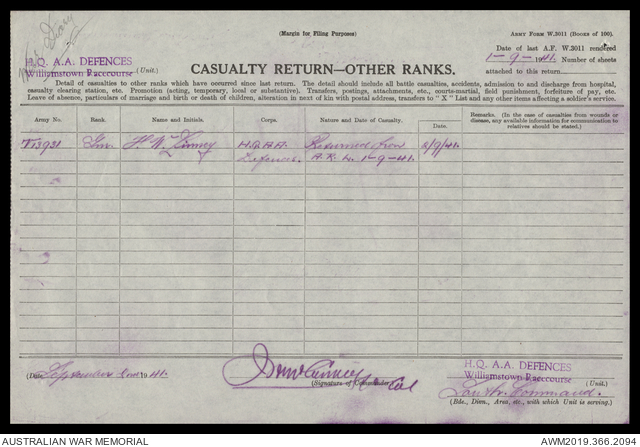 War Diary
(Margin for Filing Purposes)
ARMY FORM W.3011 (BOOKS OF 100).
H.Q. A.A. DEFENCES
Williamstown Racecourse (Unit.)
Date of last A.F. W.3011 rendered
1-9-1941. Number of sheets
attached to this return
CASUALTY RETURN—OTHER RANKS.
Detail of casualties to other ranks which have occurred since last return. The detail should include all battle casualties, accidents, admission to and discharge from hospital,
casualty clearing station, etc. Promotion (acting, temporary, local or substantive), Transfers, postings, attachments, etc., courts-martial, field punishment, forfeiture of pay, etc.
Leave of absence, particulars of marriage and birth or death of children, alteration in next of kin with postal address, transfers to "X" List and any other items affecting a soldier's service.
Army No. Rank. Name and Initials. Corps. Nature and Date of Casualty. Date. Remarks. (In the case of casualties from wounds or
disease, any available information for communication to
relatives should be stated.)
T13931 Gnr. H.W. H.Q.A.A. Returned from 2/9/41.
Defences. 1-9-41.
(Date) September 1941.
(Signature of Commander) Lt Col
H.Q. A.A. DEFENCES
Williamstown Racecourse (Unit.)
Southern Command.
(Bde., Divn., Area, etc., with which Unit is serving.)
AUSTRALIAN WAR MEMORIAL
AWM2019.366.2094